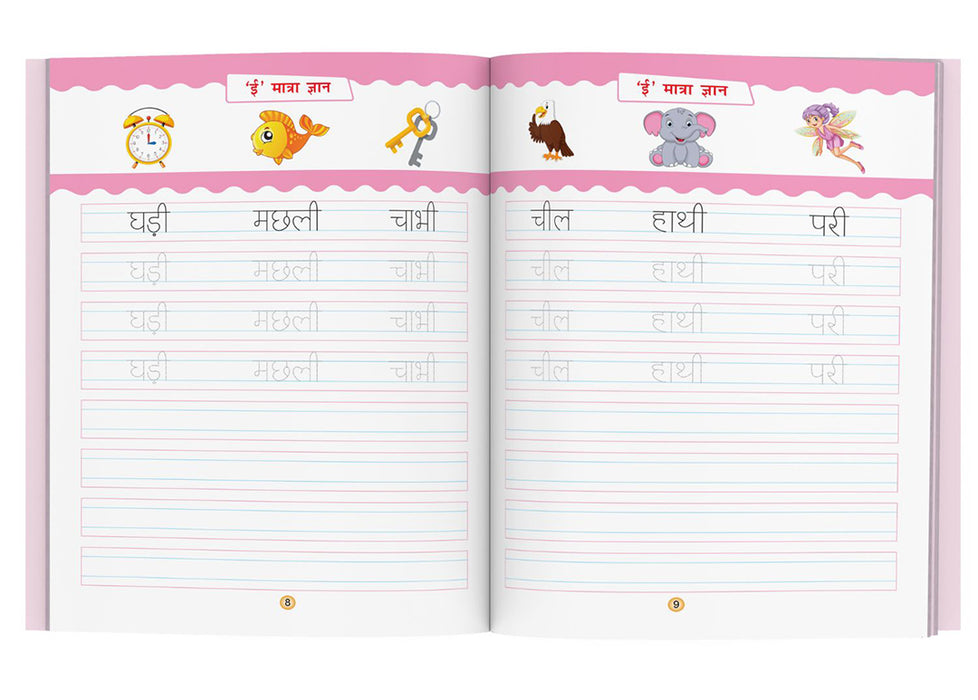 ‘ई’ मात्रा ज्ञान
घड़ी मछली चाभी
घड़ी मछली चाभी
घड़ी मछली चाभी
घड़ी मछली चाभी
8
‘ई’ मात्रा ज्ञान
चील हाथी परी
चील हाथी परी
चील हाथी परी
चील हाथी परी
9